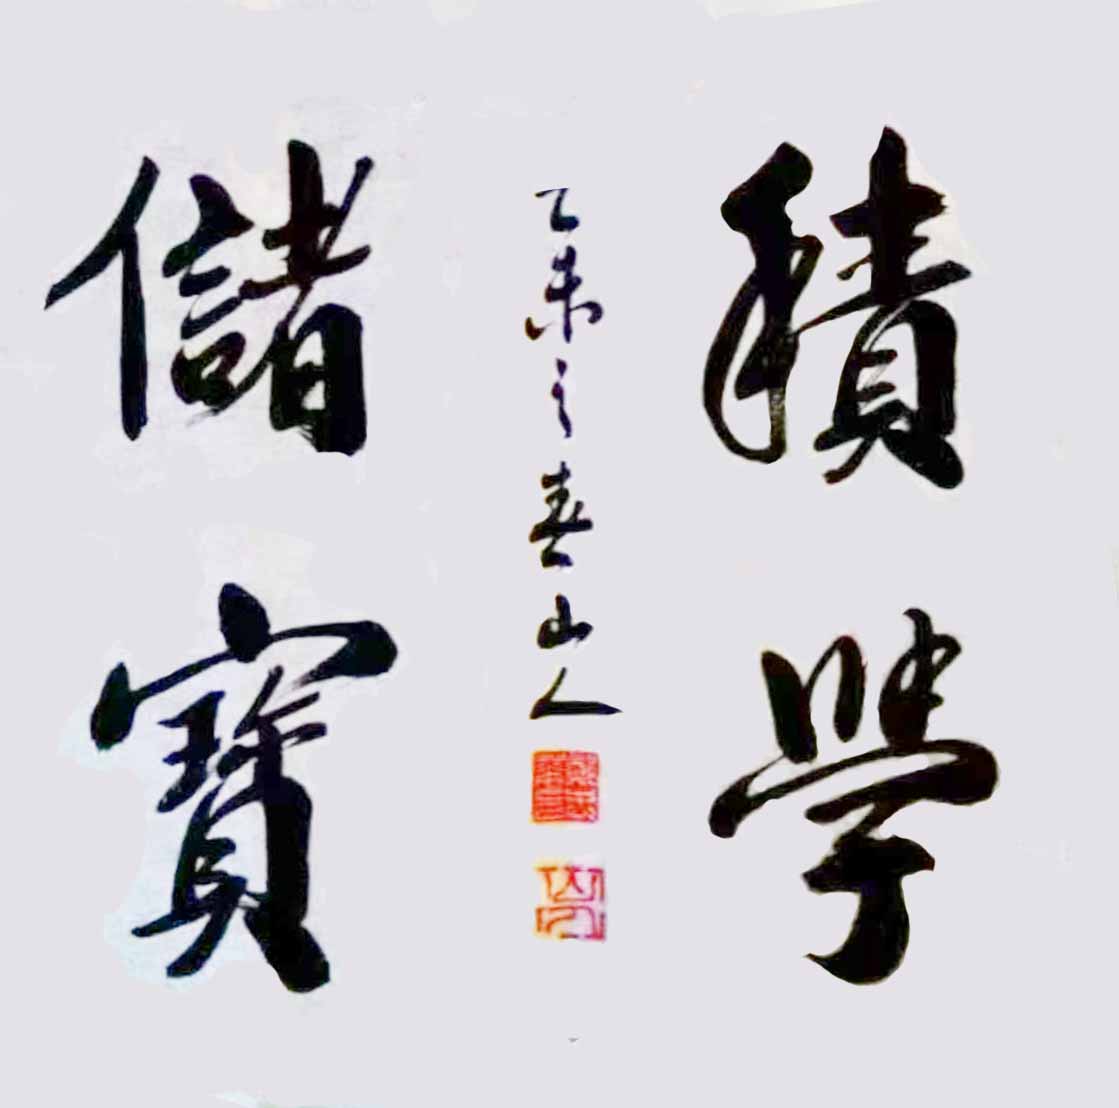 積學
乙未之春山人
儲寶